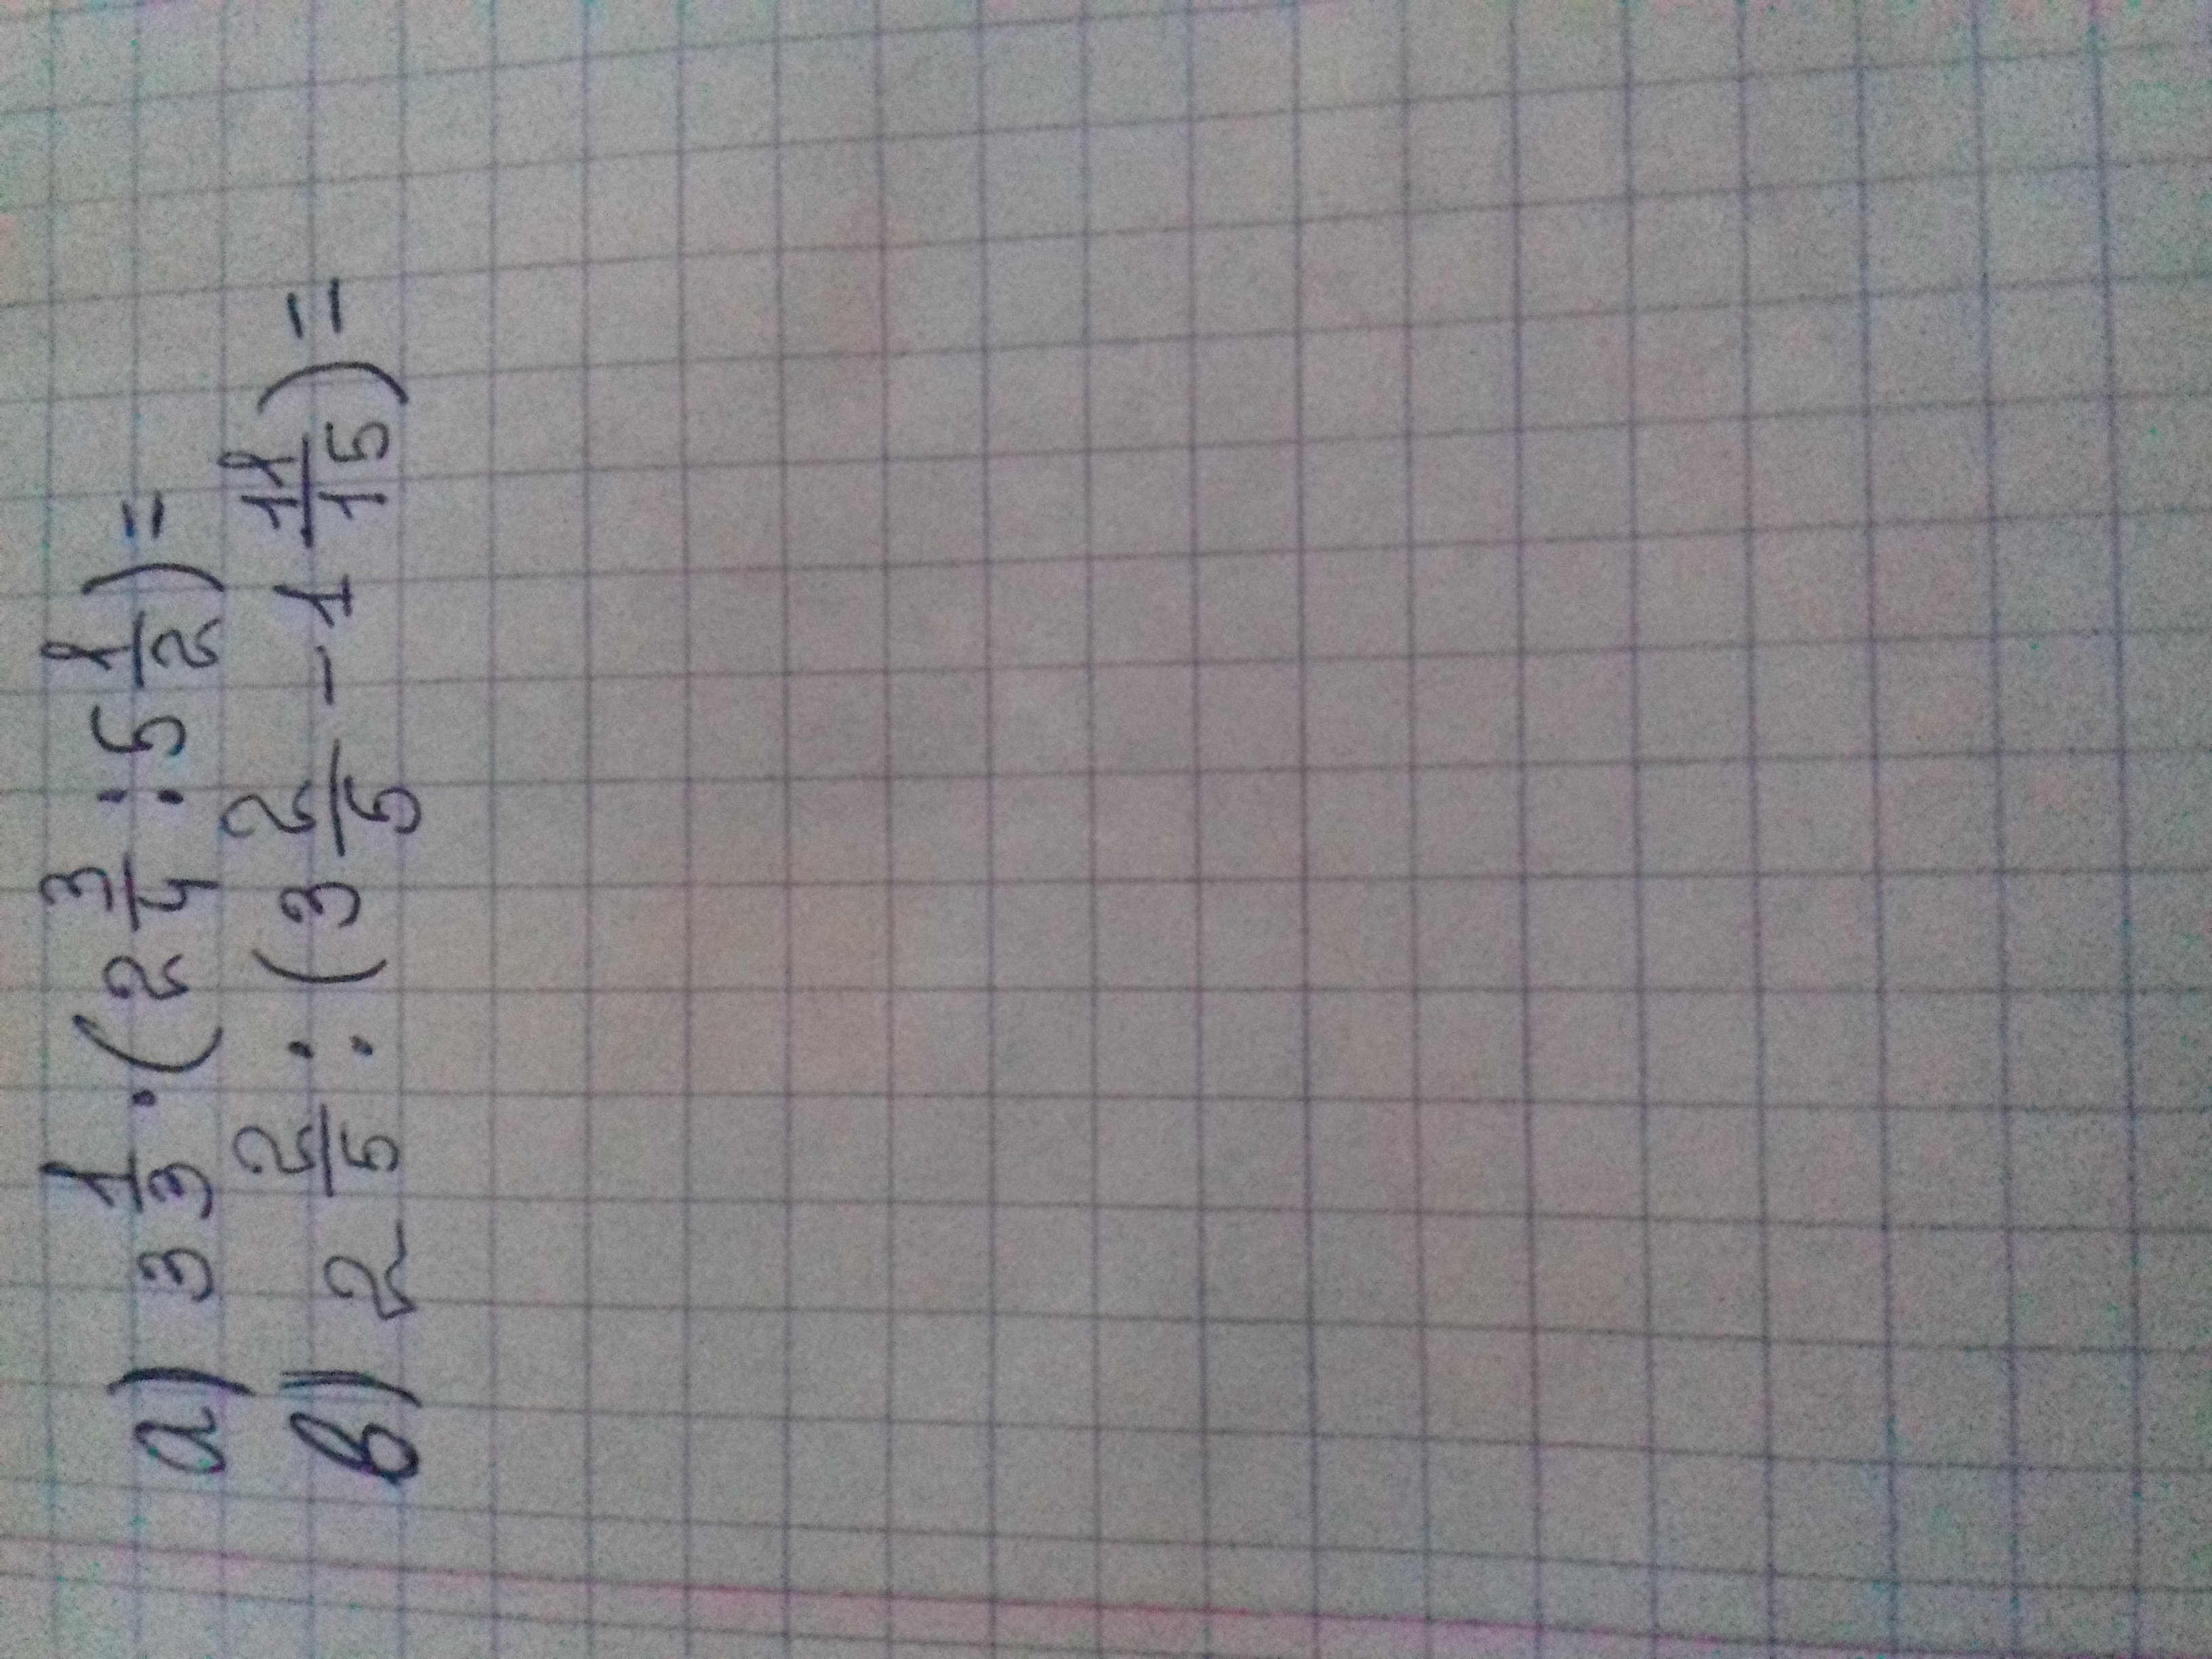 а) 3 1/3 · (2 3/4 : 5 1/2) =
в) 2 2/5 : (3 2/5 - 1 11/15) =